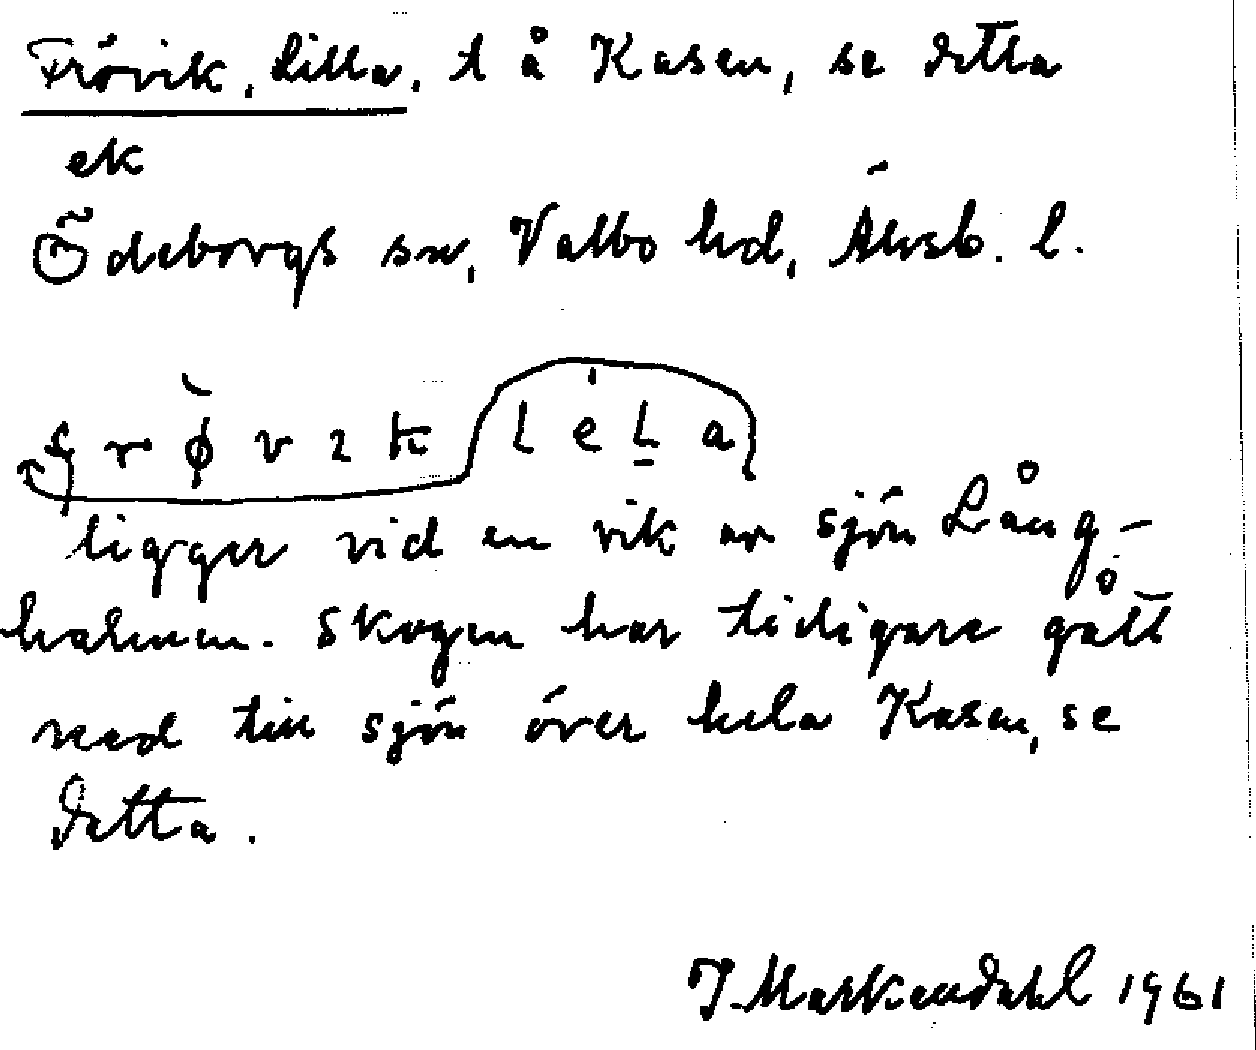 Frövik, Lilla, t å Kasen, se detta
ek
Ödeborgs sn, Valbo hd, Älvsb. l.
frø̀vık leLa
ligger vid en vik av sjön Lång-
halmen. Skogen har tidigare gått
ned till sjön över hela Kasen, se
detta.
J. Markendahl 1961